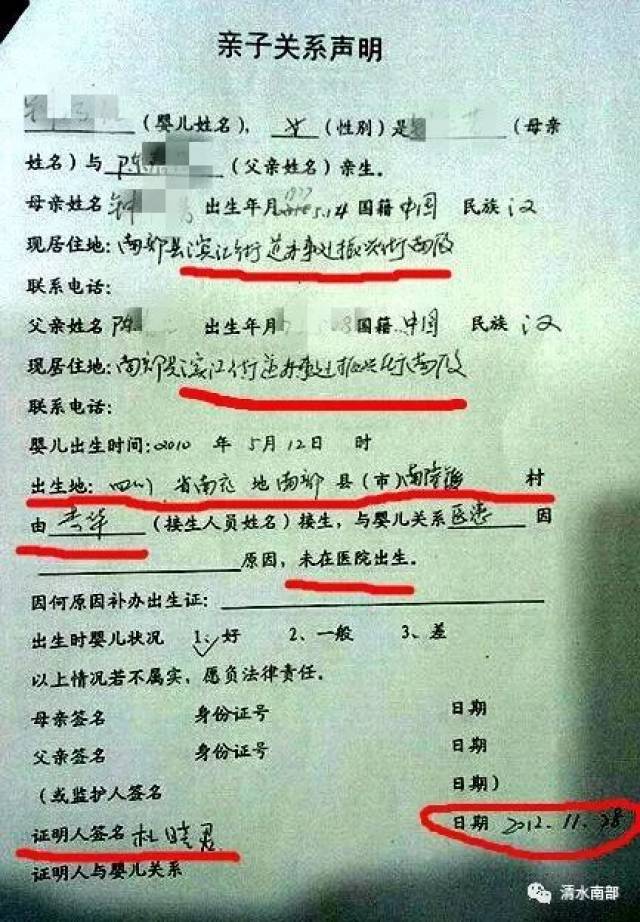 亲子关系声明
(婴儿姓名),女(性别)是 (母亲
姓名)与 陈 (父亲姓名)亲生。
母亲姓名 钟 出生年月 1977 5.14 国籍 中国 民族 汉
现居住地:南部县滨江街道办事处振兴街南段
联系电话:
父亲姓名 陈 出生年月 国籍 中国 民族 汉
现居住地:南部县滨江街道办事处振兴街南段
联系电话:
婴儿出生时间:2010 年 5 月 12 日 时
出生地:四川 省 南充 地 南部 县(市)南隆 村
由 李华 (接生人员姓名)接生,与婴儿关系 医患 因
原因,未在医院出生。
因何原因补办出生证:
出生时婴儿状况 1、好 2、一般 3、差
以上情况若不属实,愿负法律责任。
母亲签名 身份证号 日期
父亲签名 身份证号 日期
(或监护人签名 日期)
证明人签名 杜晓君 日期 2012.11.28
证明人与婴儿关系
清水南部